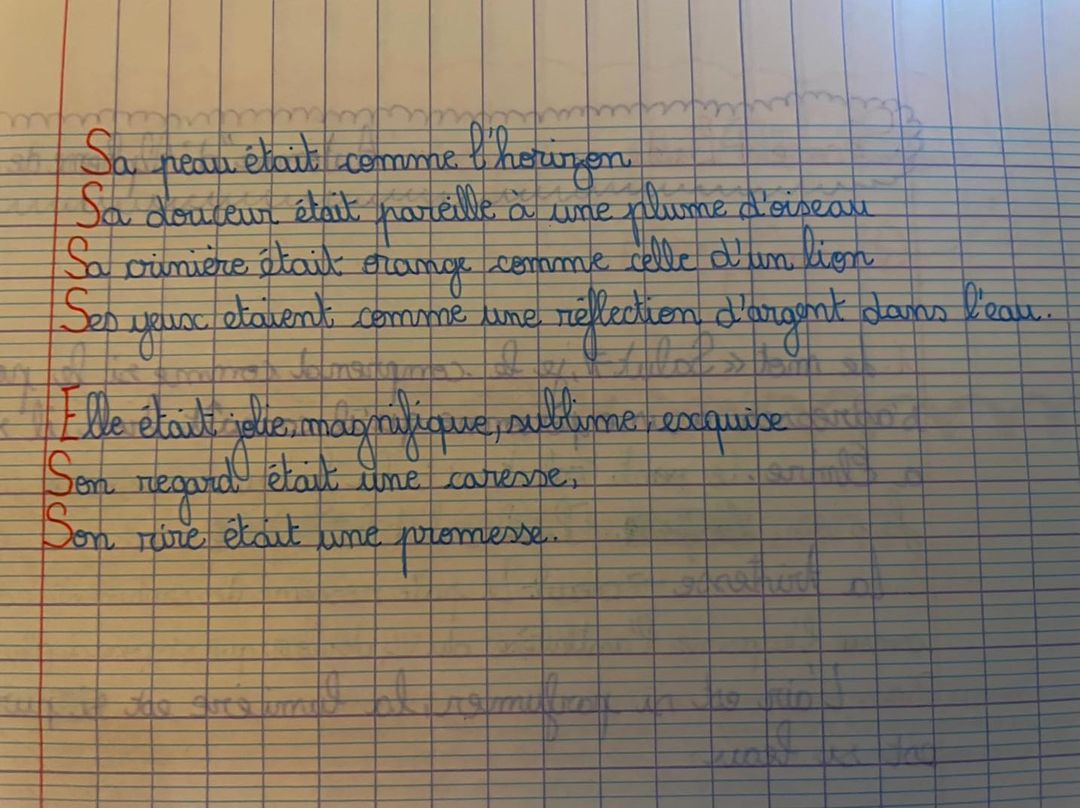 Sa peau était comme l'horizon
Sa douceur était pareille à une plume d'oiseau
Sa crinière était orange comme celle d'un lion
Ses yeux etaient comme une réflection d'argent dans l'eau.
Elle était jolie, magnifique, sublime, exquise
Son regard était une caresse,
Son rire était une promesse.